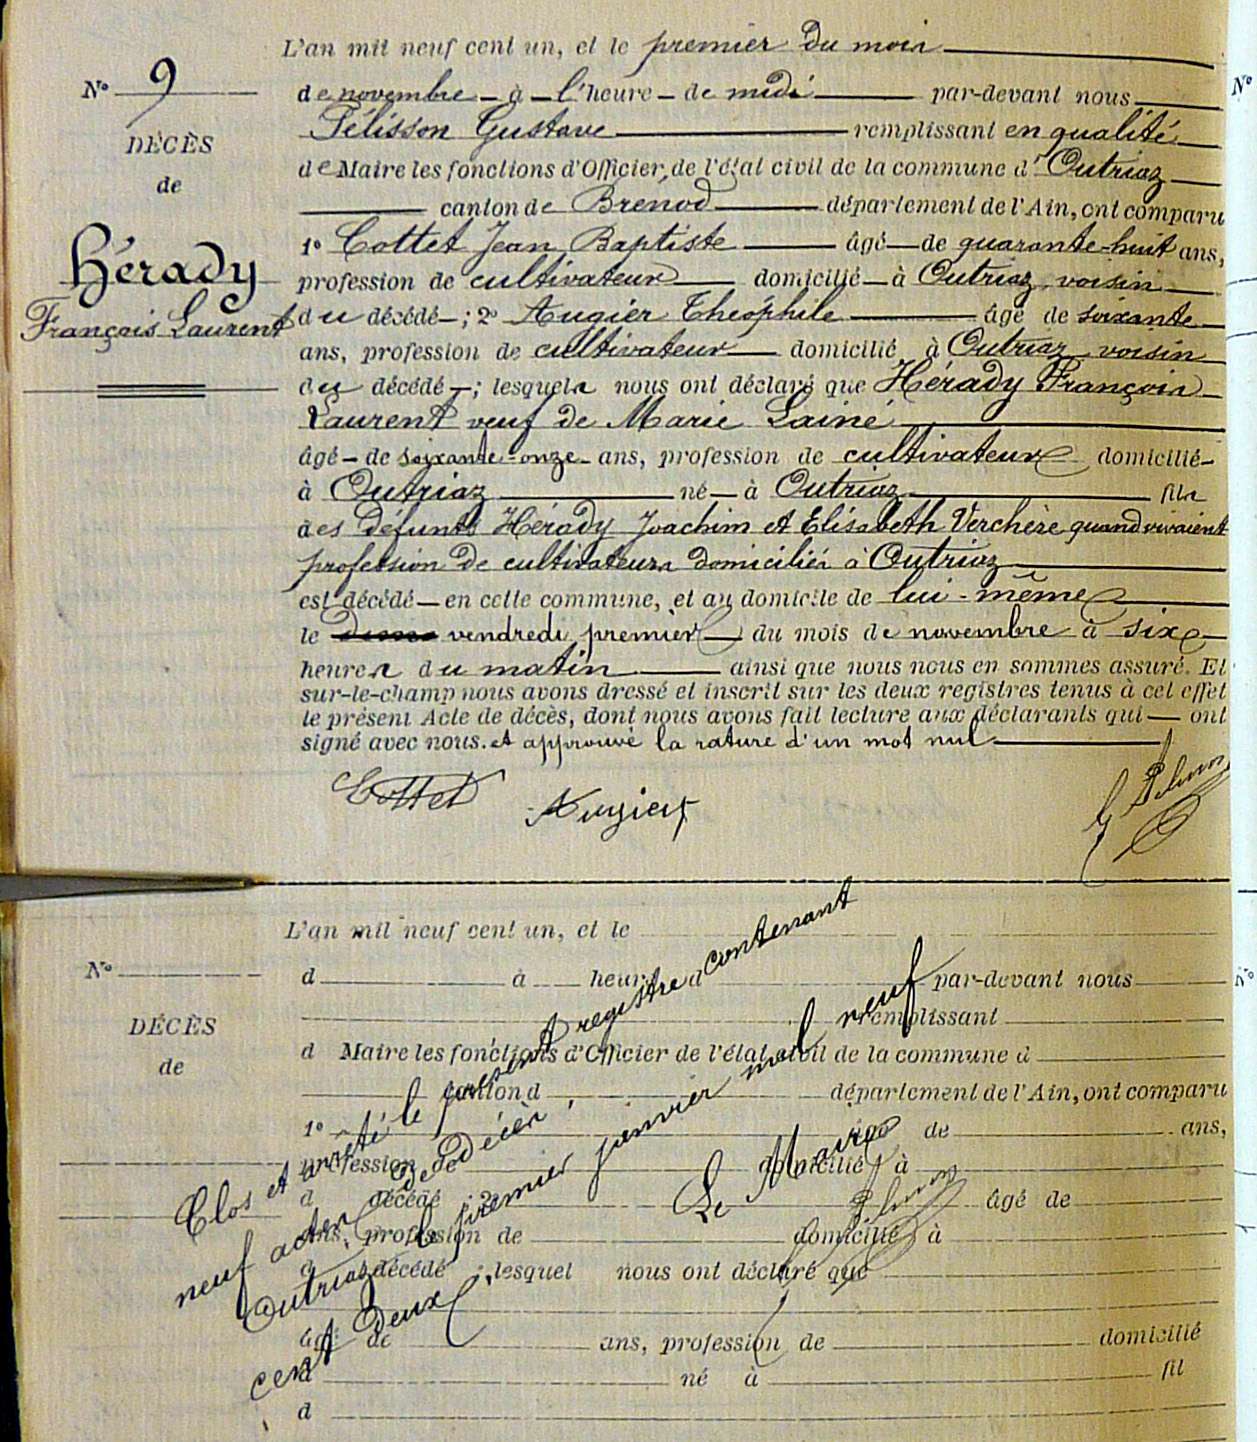 L'an mil neuf cent un, et le premier du mois
N° 9
de novembre à l'heure de midi par-devant nous
Pélisson Gustave remplissant en qualité
DÉCÈS
de Maire les fonctions d'Officier de l'état civil de la commune d'Outriaz
de
canton de Brénod département de l'Ain, ont comparu
Hérady
1° Cottet Jean Baptiste âgé de quarante-huit ans,
profession de cultivateur domicilié à Outriaz voisin
François Laurent
du décédé ; 2° Augier Théophile âgé de soixante
ans, profession de cultivateur domicilié à Outriaz voisin
du décédé ; lesquels nous ont déclaré que Hérady François
Laurent veuf de Marie Lainé
âgé de soixante-onze ans, profession de cultivateur domicilié
à Outriaz né à Outriaz fils
des défunts Hérady Joachim et Elisabeth Verchère quand vivaient
profession de cultivateurs domiciliés à Outriaz
est décédé en cette commune, et au domicile de lui-même
le vendredi premier du mois de novembre à six
heures du matin ainsi que nous nous en sommes assuré. Et
sur-le-champ nous avons dressé et inscrit sur les deux registres tenus à cet effet
le présent Acte de décès, dont nous avons fait lecture aux déclarants qui ont
signé avec nous. et approuvé la rature d'un mot nul
Cottet Augier G Pélisson
L'an mil neuf cent un, et le
N°
d à heure d par-devant nous
remplissant
DÉCÈS
d Maire les fonctions d'Officier de l'état civil de la commune d
de
canton d département de l'Ain, ont comparu
1° âgé de ans,
profession de domicilié à
d décédé ; 2° âgé de
ans, profession de domicilié à
d décédé ; lesquel nous ont déclaré que
âgé de ans, profession de domicilié
à né à fil
d
Clos et arrêté le présent registre contenant
neuf actes de décès,
Outriaz le premier janvier mil neuf
cent deux
Le Maire
Pélisson